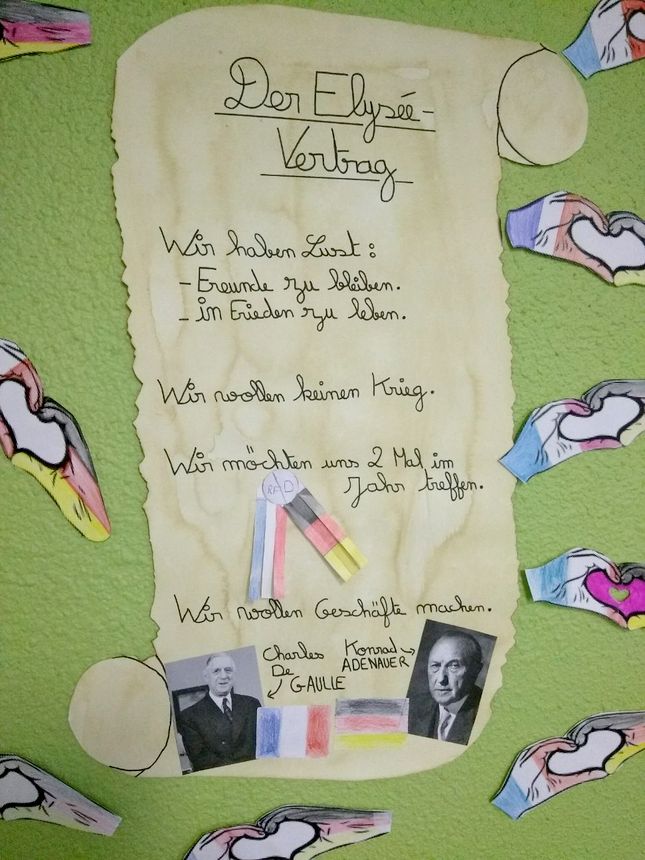 Der Elysée-
Vertrag
Wir haben Lust :
- Freunde zu bleiben.
- in Frieden zu leben.
Wir wollen keinen Krieg.
Wir möchten uns 2 Mal im
Jahr treffen.
Wir wollen Geschäfte machen.
Charles
De
GAULLE
Konrad
ADENAUER